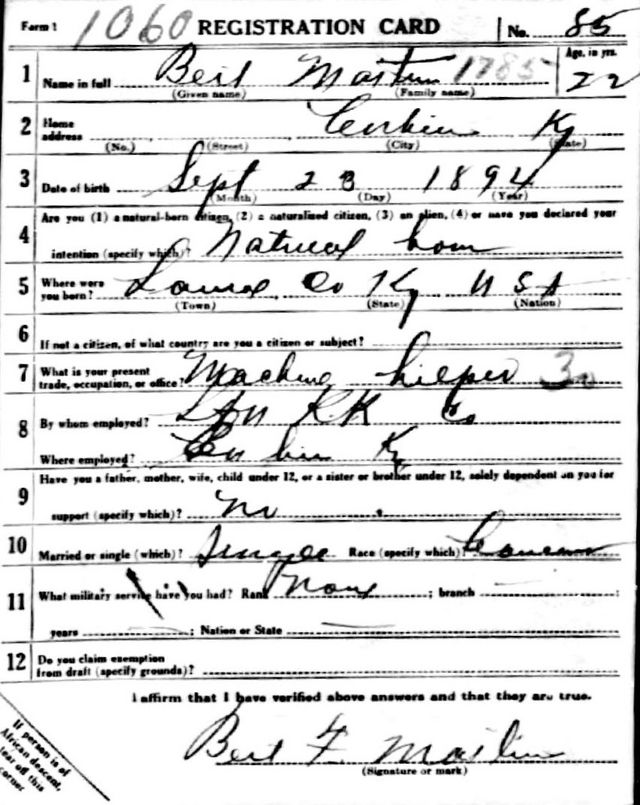 Form 1 1060 REGISTRATION CARD No. 85
1 Name in full Bert Martin 1785 Age, in yrs. 22
(Given name) (Family name)
2 Home address Corbin Ky
(No.) (Street) (City) (State)
3 Date of birth Sept 23 1894
(Month) (Day) (Year)
4 Are you (1) a natural-born citizen, (2) a naturalized citizen, (3) an alien, (4) or have you declared your
intention (specify which)? Natural born
5 Where were you born? Laurel Co Ky U S A
(Town) (State) (Nation)
6 If not a citizen, of what country are you a citizen or subject?
7 What is your present trade, occupation, or office? Machine helper
8 By whom employed? L & N RR Co
Where employed? Corbin Ky
9 Have you a father, mother, wife, child under 12, or a sister or brother under 12, solely dependent on you for
support (specify which)? No
10 Married or single (which)? Single Race (specify which)? Caucasian
11 What military service have you had? Rank None ; branch ;
years ; Nation or State
12 Do you claim exemption
from draft (specify grounds)?
I affirm that I have verified above answers and that they are true.
Bert F. Martin
(Signature or mark)
If person is of
African descent,
tear off this
corner.